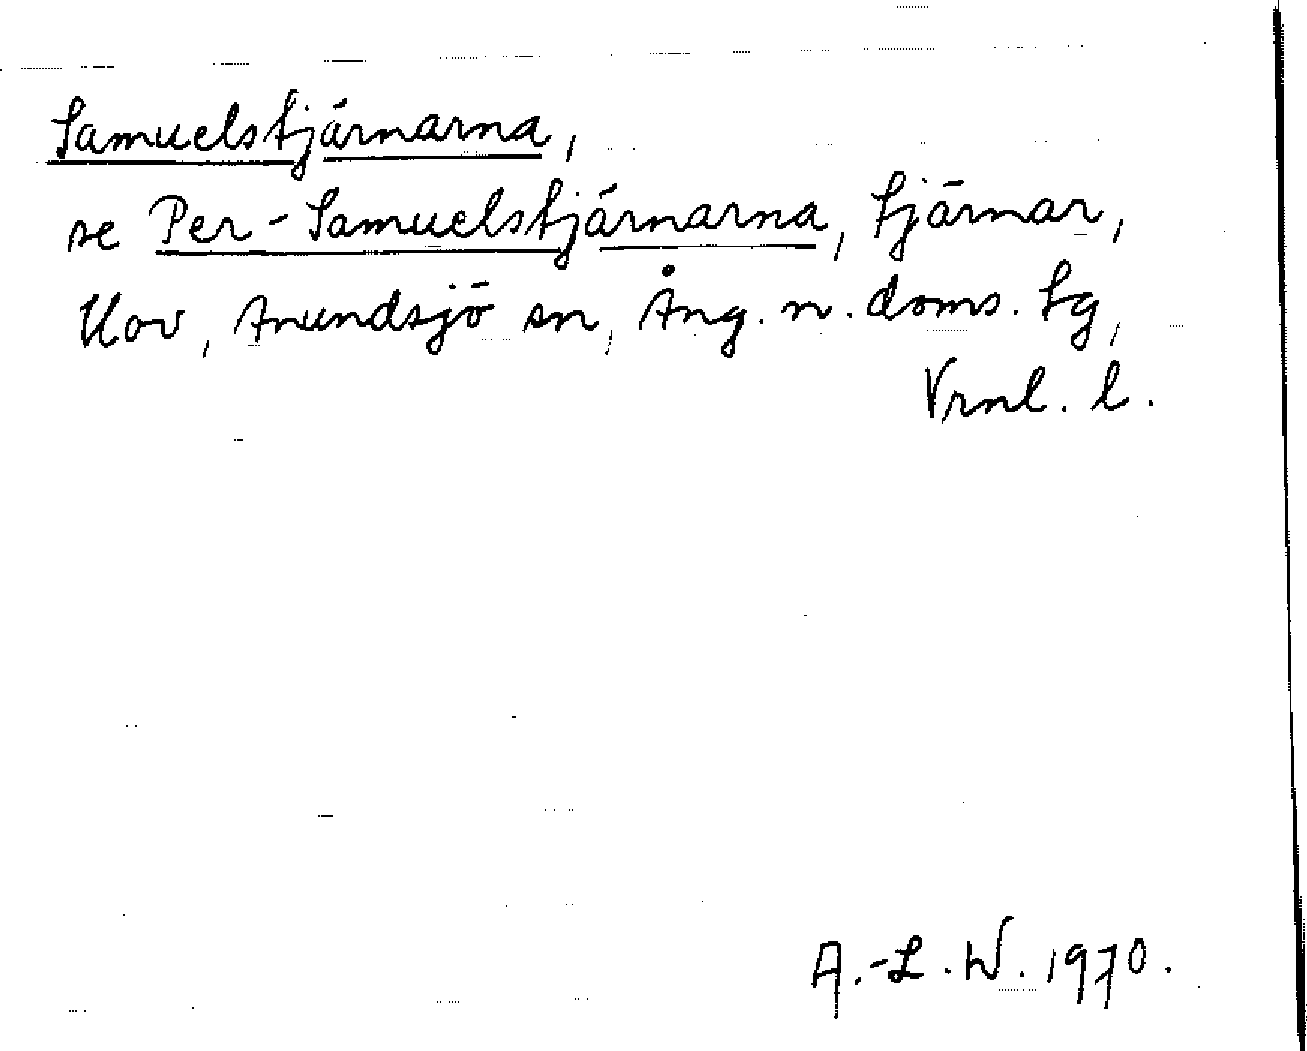 Samuelstjärnarna,
se Per-Samuelstjärnarna, tjärnar,
Uov, Anundsjö sn, Ång. n. doms. tg,
Vrnl. l.
A.-L. W. 1970.